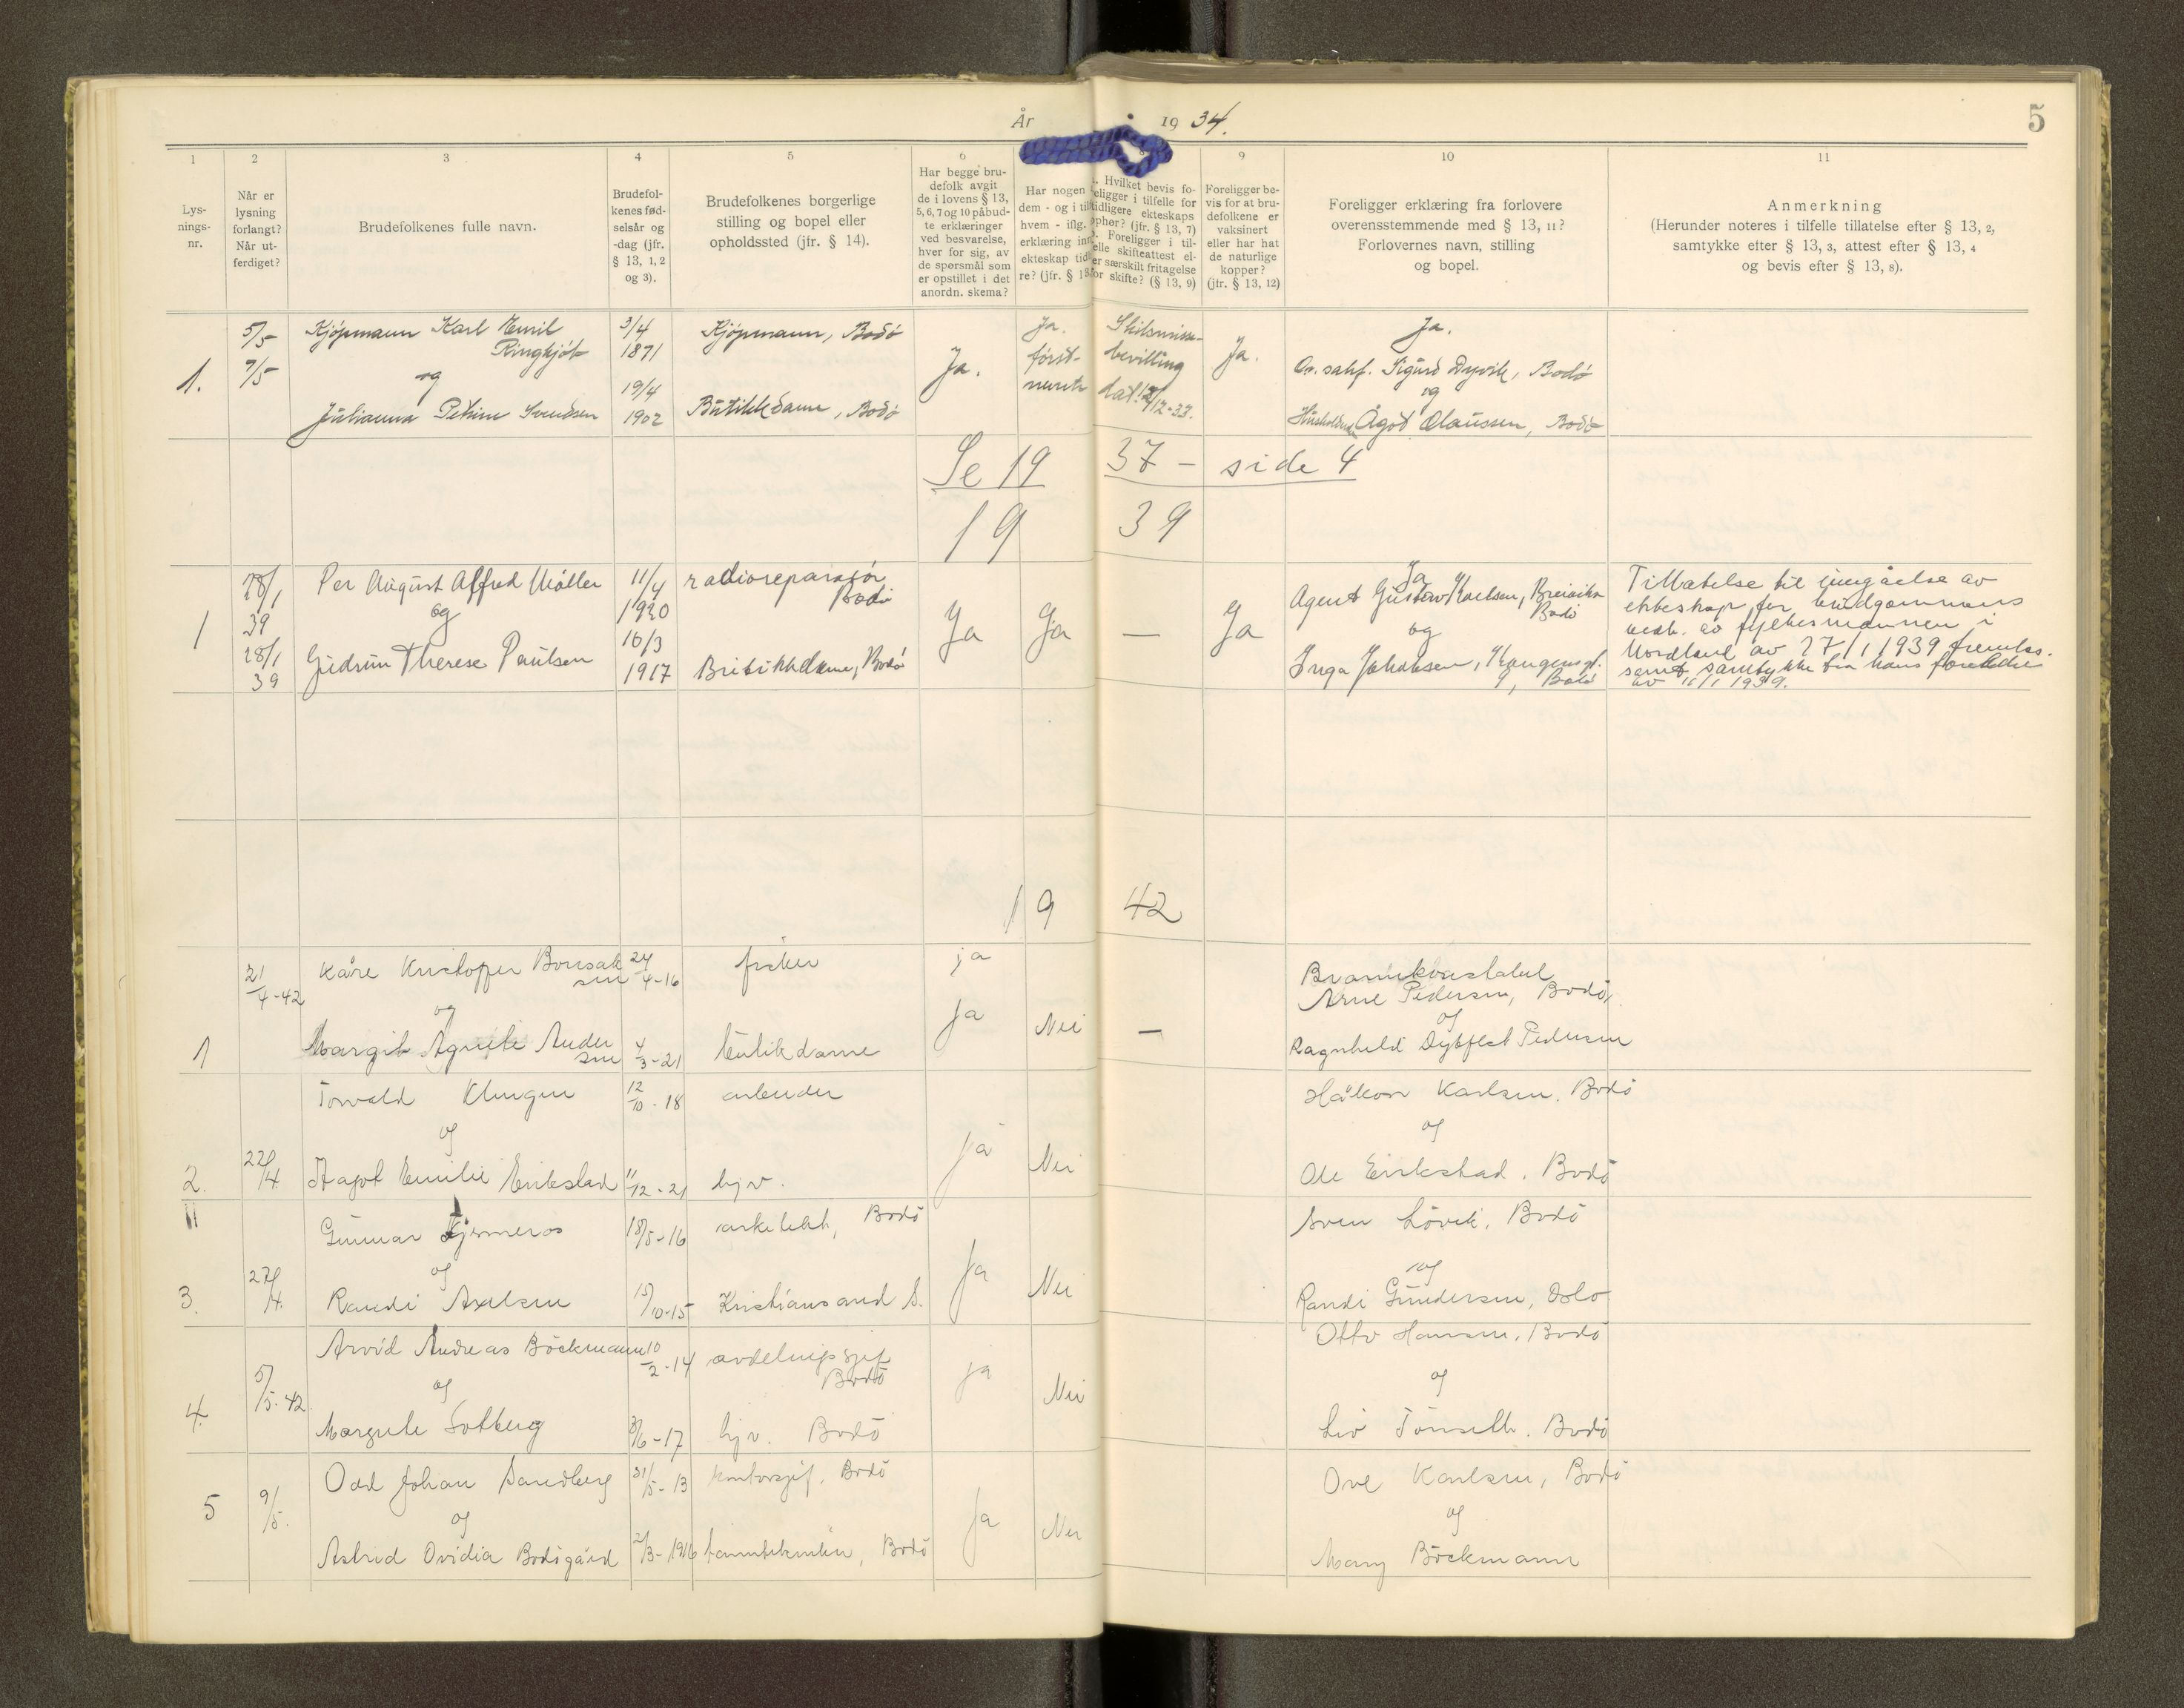 År 1934.
5
1 2 3 4 5 6 8 9 10 11
Lys-
nings-
nr.
Når er
lysning
forlangt?
Når ut-
ferdiget?
Brudefolkenes fulle navn.
Brudefol-
kenes fød-
selsår og
-dag (jfr.
§ 13, 1, 2
og 3).
Brudefolkenes borgerlige
stilling og bopel eller
opholdssted (jfr. § 14).
Har begge bru-
defolk avgit
de i lovens § 13,
5, 6, 7 og 10 påbud-
te erklæringer
ved besvarelse,
hver for sig, av
de spørsmål som
er opstillet i det
anordn. skema?
Har nogen
dem - og i til
hvem - iflg.
erklæring inn
ekteskap tid
re? (jfr. § 13
Hvilket bevis fo-
religger i tilfelle for
tidligere ekteskaps
ophør? (jfr. § 13, 7)
Foreligger i til-
elle skifteattest el-
er særskilt fritagelse
for skifte? (§ 13, 9)
Foreligger be-
vis for at bru-
defolkene er
vaksinert
eller har hat
de naturlige
kopper?
(jfr. § 13, 12)
Foreligger erklæring fra forlovere
overensstemmende med § 13, 11?
Forlovernes navn, stilling
og bopel.
Anmerkning
(Herunder noteres i tilfelle tillatelse efter § 13, 2,
samtykke efter § 13, 3, attest efter § 13, 4
og bevis efter § 13, 8).
1.
5/5
7/5
Kjøpmann Karl Emil
Ringkjøb
og
Julianna Petrine Svendsen
3/4
1871
19/4
1902
Kjøpmann, Bodø
Butikkdame, Bodø
Ja.
Ja.
først-
nevnte
Skilsmisse-
bevilling
dat.
12-33.
Ja.
Ja.
O.r.sakf. Sigurd Dyvik, Bodø
og
Ågot Olaussen, Bodø
Se 1937 - side 4
1939
1
28/1
39
28/1
39
Per August Alfred Møller
og
Gudrun Therese Paulsen
11/4
1920
16/3
1917
radioreparatør
Bodø
Butikkdame, Bodø
Ja
Ja
—
Ja
Ja
Agent Gustav Karlsen, Breivika
Bodø
og
Inga Johansen, Kongensgt.
9, Bodø
Tillatelse til inngåelse av
ekteskap for brudgommens
vedk. av fylkesmannen i
Nordland av 27/1 1939 fremlas.
samt samtykke fra hans foreldre
av 11/1 1939.
1942
1
21/4-42
Kåre Kristoffer Bonsak
sen
og
Margit Agnete Ander
sen
24/4-16
4/3-21
fisker
butikdame
ja
Ja
Nei
—
Brannkonstabel
Arne Pedersen, Bodø,
og
Ragnhild Dybfest Pedersen
2.
22/4.
Torvald Klungen
og
Aagot Emilie Eirikstad
12/10-18
11/12-21
arbeider
hjv.
Ja
Nei
Håkon Karlsen. Bodø
og
Ole Eirikstad. Bodø
3.
27/4.
Gunnar Kjerneros
og
Randi Axelsen
18/5-16
15/10-15
arkitekt, Bodø
Kristiansand S.
Ja
Nei
Sven Løvik. Bodø
og
Randi Gundersen, Oslo
4.
5/5-42.
Arvid Andreas Böckmann
og
Margrete Solberg
10/2-14
3/6-17
avdelingssjef
Bodø
hjv. Bodø
ja
Nei
Otto Hansen. Bodø
og
Liv . Bodø
5
9/5.
Odd Johan Sandberg
og
Astrid Ovidia Bodøgård
31/5-13
2/3-1916
kontorsjef, Bodø
tanntekniker, Bodø
Ja
Nei
Ove Karlsen, Bodø
og
Mary Böckmann